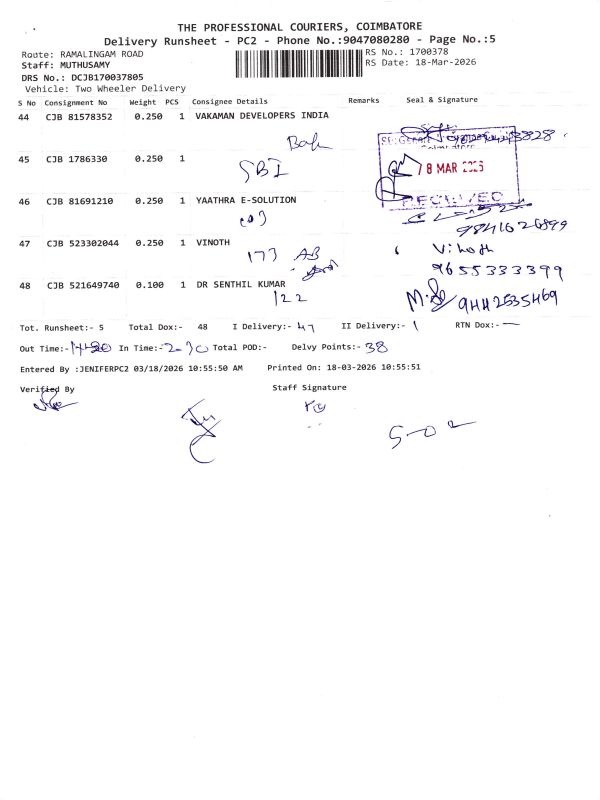 THE PROFESSIONAL COURIERS, COIMBATORE
Delivery Runsheet - PC2 - Phone No.:9047080280 - Page No.:5
Route: RAMALINGAM ROAD
RS No.: 1700378
Staff: MUTHUSAMY
RS Date: 18-Mar-2026
DRS No.: DCJB170037805
Vehicle: Two Wheeler Delivery
S No Consignment No Weight PCS Consignee Details Remarks Seal & Signature
44 CJB 81578352 0.250 1 VAKAMAN DEVELOPERS INDIA
45 CJB 1786330 0.250 1
SBI
8 MAR 2026
RECEIVED
46 CJB 81691210 0.250 1 YAATHRA E-SOLUTION
9841626899
47 CJB 523302044 0.250 1 VINOTH
177 AB
Vinoth
9655333399
48 CJB 521649740 0.100 1 DR SENTHIL KUMAR
122
9442535469
Tot. Runsheet:- 5 Total Dox:- 48 I Delivery:- 47 II Delivery:- 1 RTN Dox:- —
Out Time:- In Time:- Total POD:- Delvy Points:- 38
Entered By :JENIFERPC2 03/18/2026 10:55:50 AM Printed On: 18-03-2026 10:55:51
Verified By Staff Signature